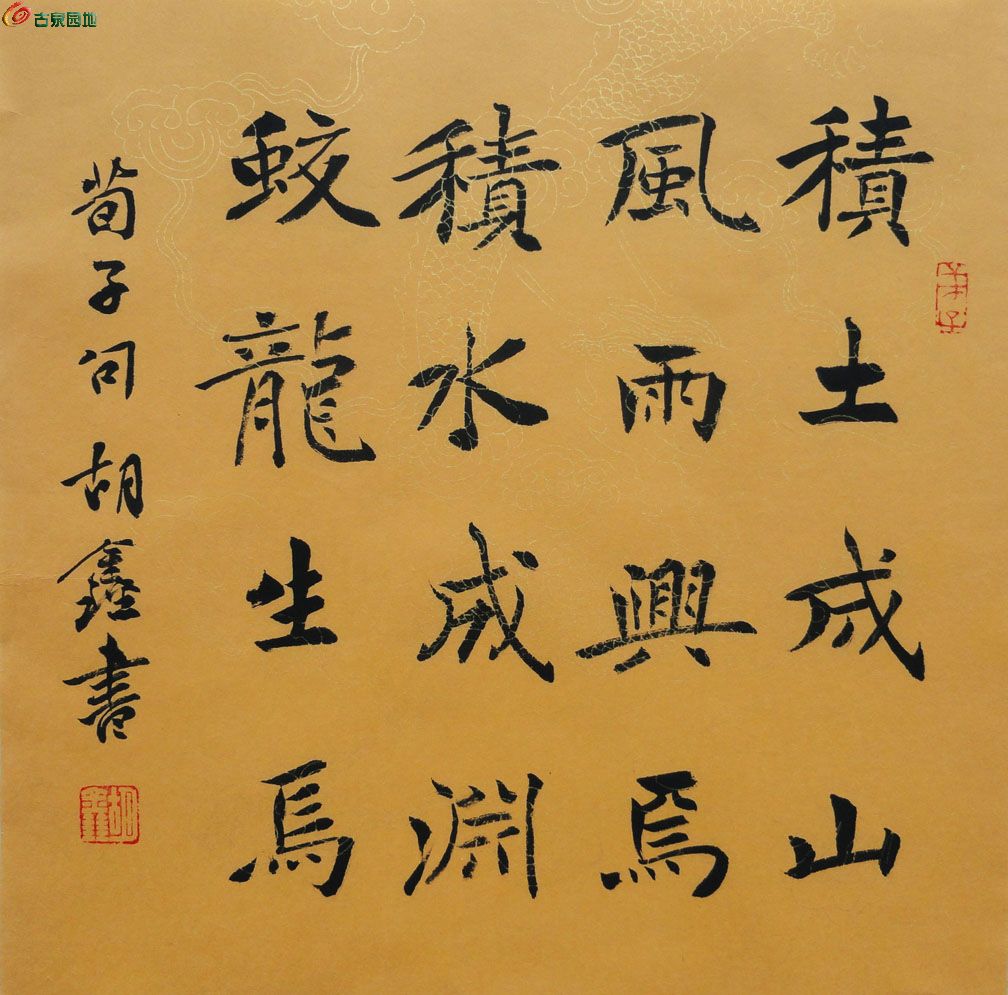 古泉园地
積土成山
風雨興焉
積水成淵
蛟龍生焉
荀子句 胡鑫書